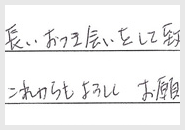 長いおつき会いをして致
これからもよろしく お願